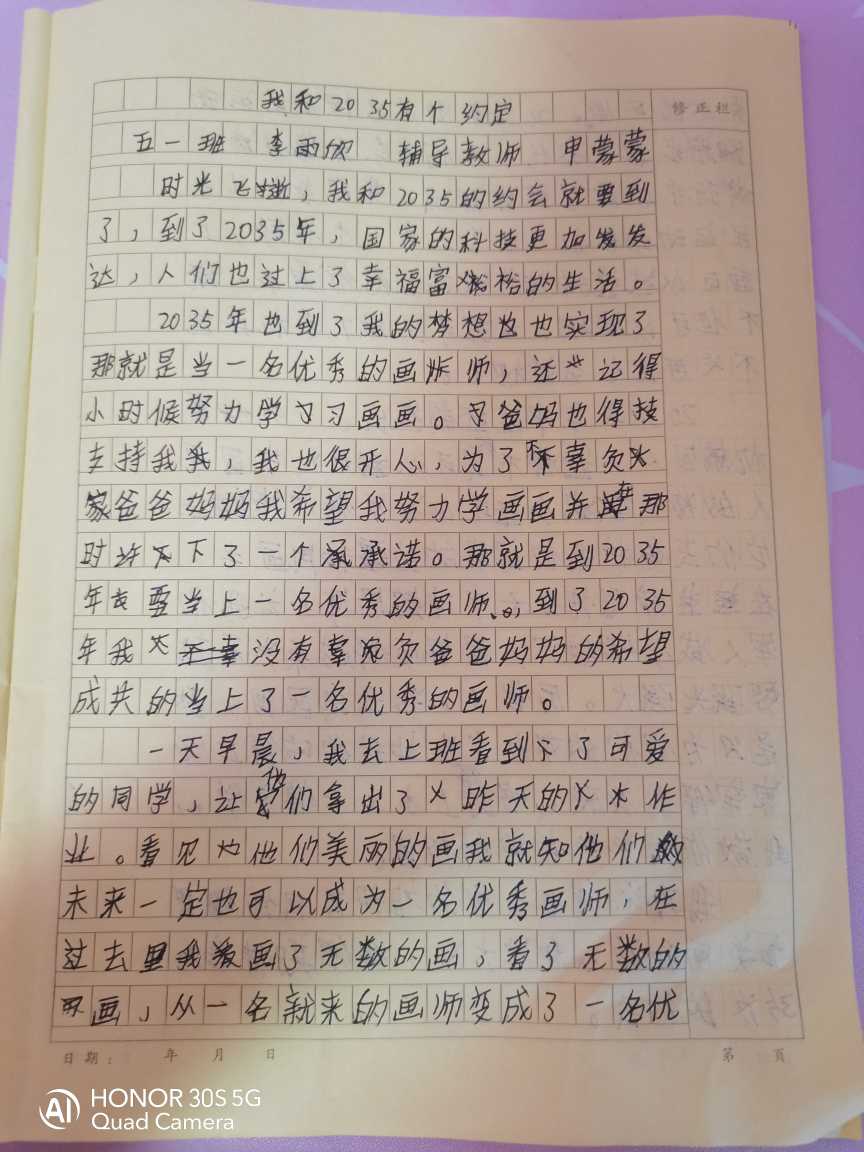 我和2035有个约定
修正栏
五一班 李雨欣 辅导教师 申蒙蒙
时光飞逝，我和2035的约会就要到
了，到了2035年，国家的科技更加发发
达，人们也过上了幸福富裕的生活。
2035年也到了我的梦想也实现了
那就是当一名优秀的画师，还记得
小时候努力学习习画画。爸妈也得技
支持我我，我也很开心，为了不辜负
家爸爸妈妈我希望我努力学画画并在那
时许下了一个承承诺。那就是到2035
年要当上一名优秀的画师。，到了2035
年我没有辜负爸爸妈妈的希望
成共的当上了一名优秀的画师。
一天早晨，我去上班看到下了可爱
的同学，让他们拿出了昨天的木作
业。看见他们美丽的画我就知他们的
未来一定也可以成为一名优秀画师，在
过去里我画了无数的画，看了无数的
画，从一名就来的画师变成了一名优
日期： 年 月 日
第 页
AI HONOR 30S 5G
Quad Camera